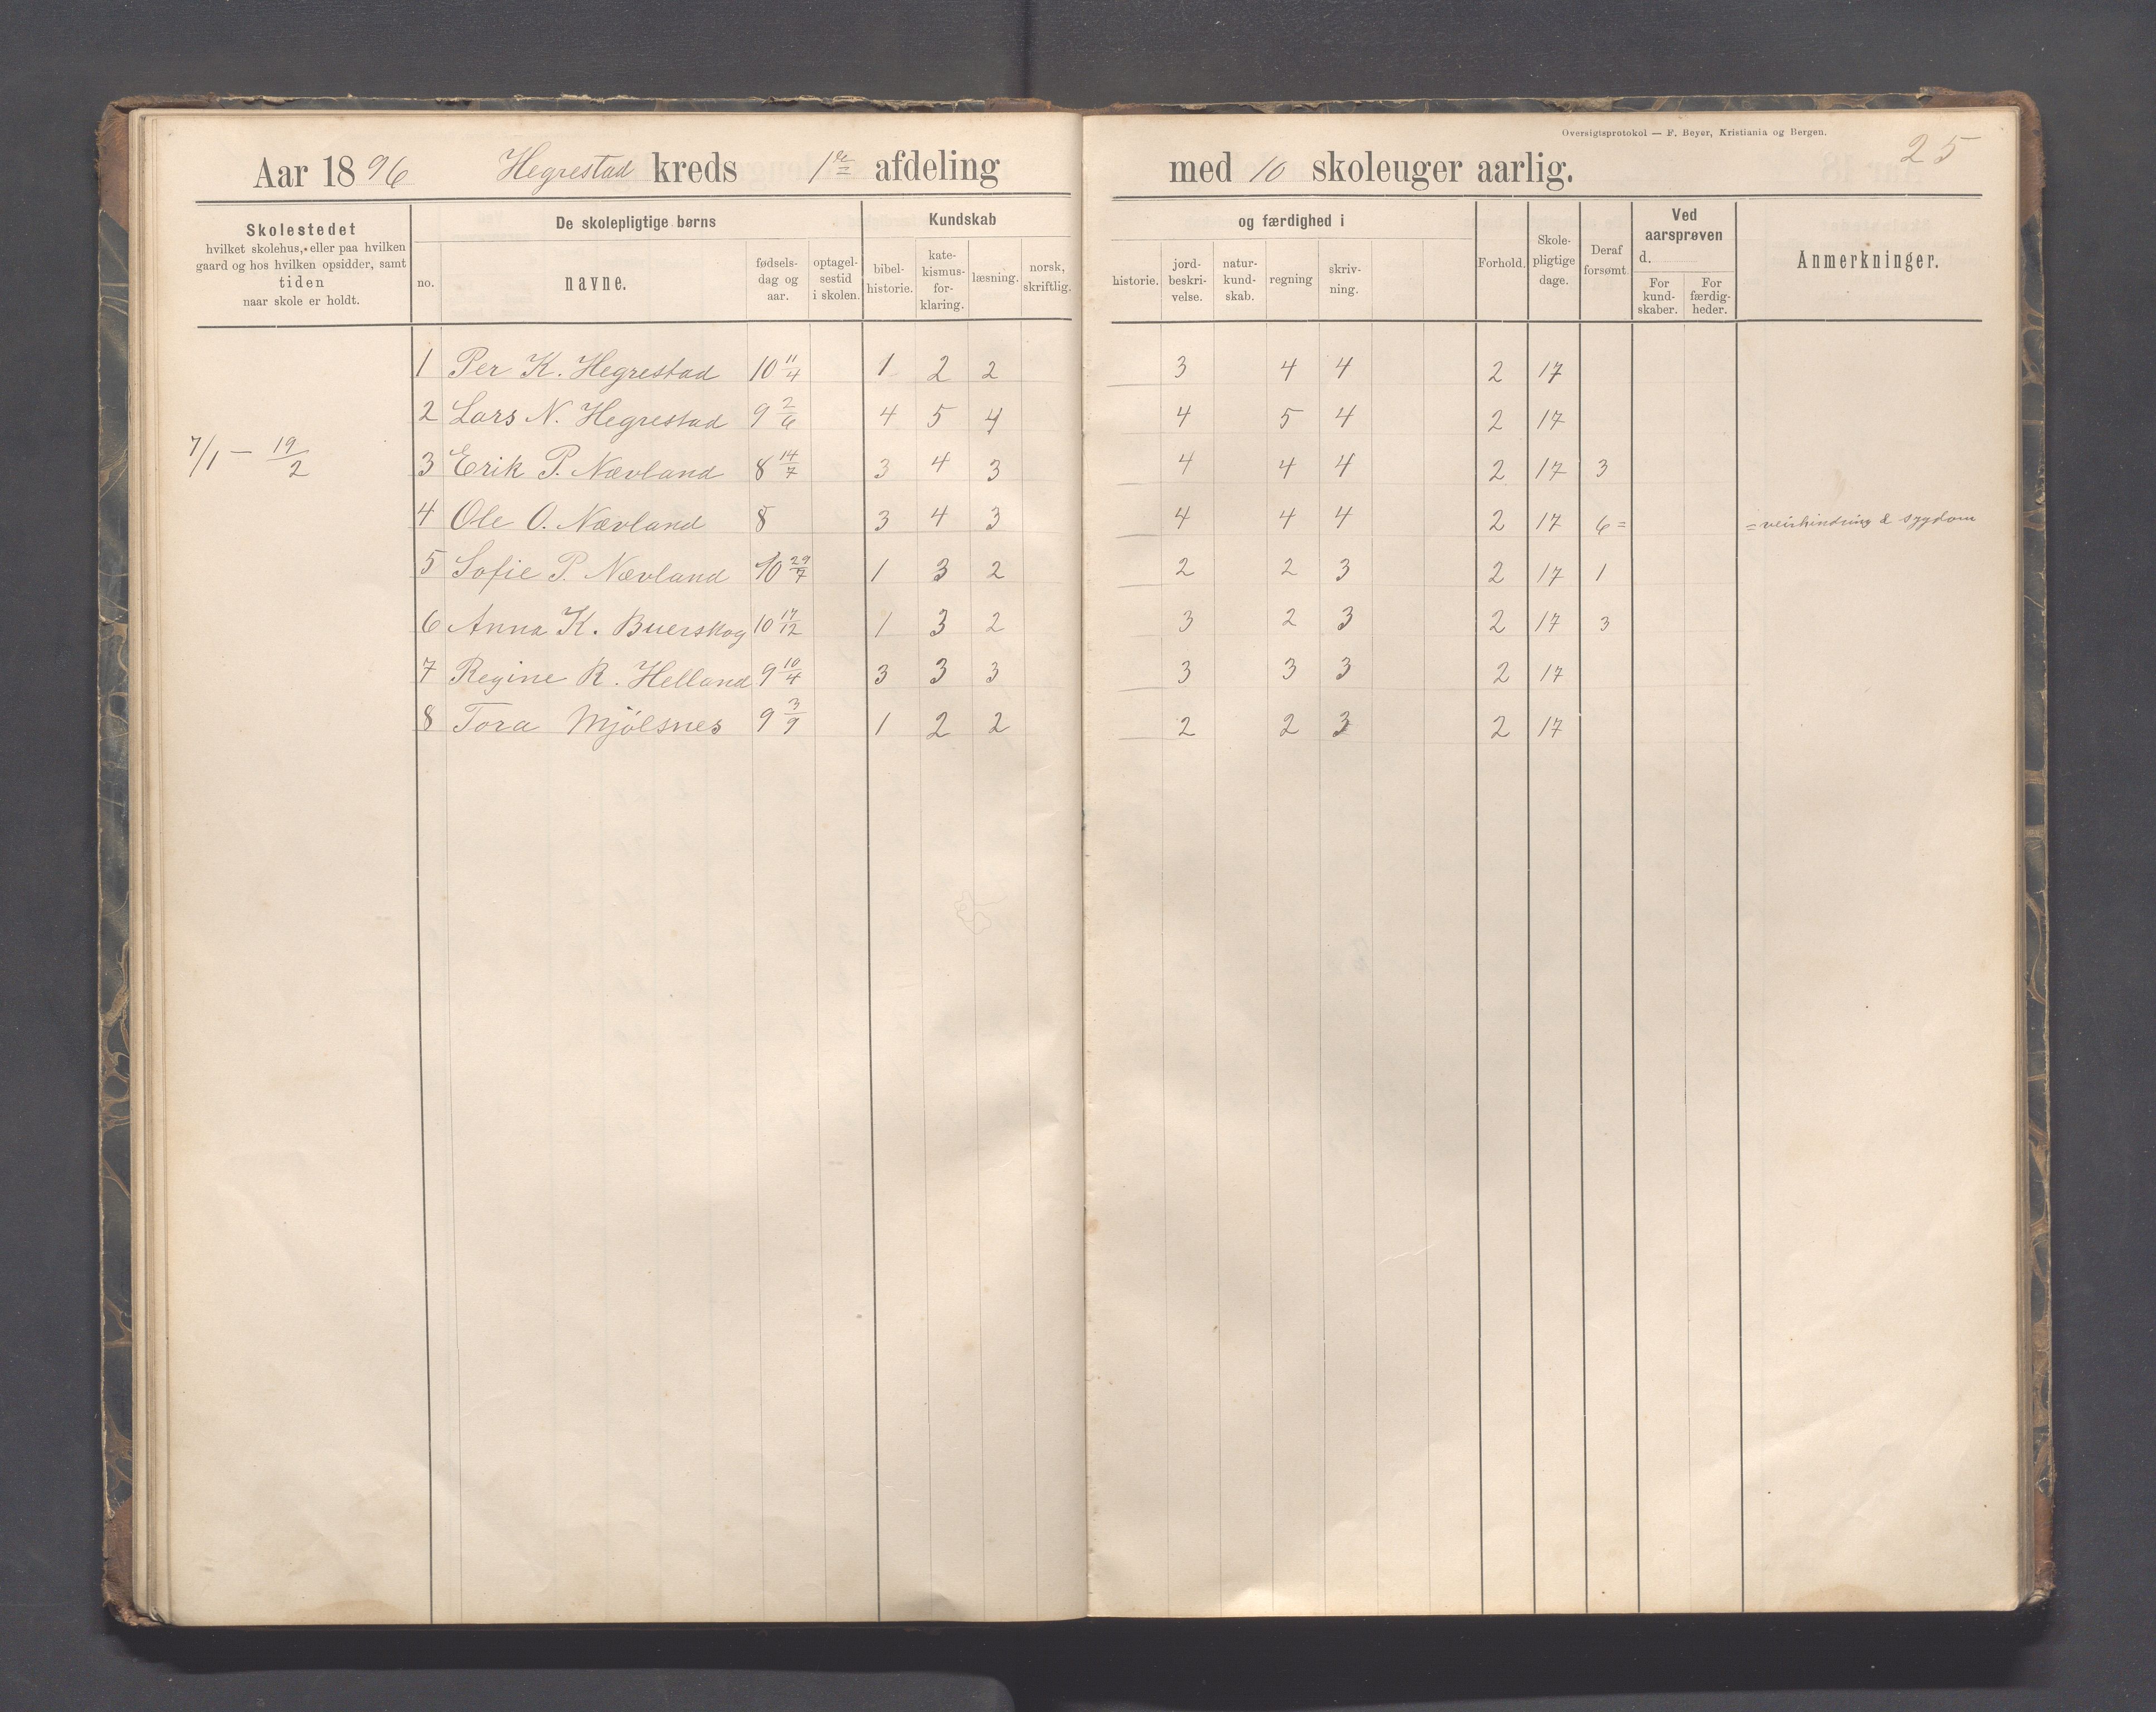 Oversigtsprotokol — F. Beyer, Kristiania og Bergen.
25
Aar 1896 Hegrestad kreds 1ste afdeling med 10 skoleuger aarlig.
Skolestedet
hvilket skolehus, eller paa hvilken
gaard og hos hvilken opsidder, samt
tiden
naar skole er holdt.
De skolepligtige børns
no. navne. fødselsdag og aar. optagelsestid i skolen.
Kundskab og færdighed i
bibelhistorie. katekismusforklaring. læsning. norsk, skriftlig. historie. jordbeskrivelse. naturkundskab. regning skrivning.
Forhold. Skolepligtige dage. Deraf forsømt.
Ved aarsprøven d.
For kundskaber. For færdigheder.
Anmerkninger.
1 Per K. Hegrestad 10 11/4 1 2 2 3 4 4 2 17
2 Lars N. Hegrestad 9 2/6 4 5 4 4 5 4 2 17
7/1 — 19/2
3 Erik P. Nævland 8 14/7 3 4 3 4 4 4 2 17 3
4 Ole O. Nævland 8 3 4 3 4 4 4 2 17 6= =veirhindring & sygdom
5 Sofie P. Nævland 10 29/7 1 3 2 2 2 3 2 17 1
6 Anna K. Buerskog 10 17/12 1 3 2 3 2 3 2 17 3
7 Regine R. Helland 9 10/4 3 3 3 3 3 3 2 17
8 Tora Mjölsnes 9 3/9 1 2 2 2 2 3 2 17